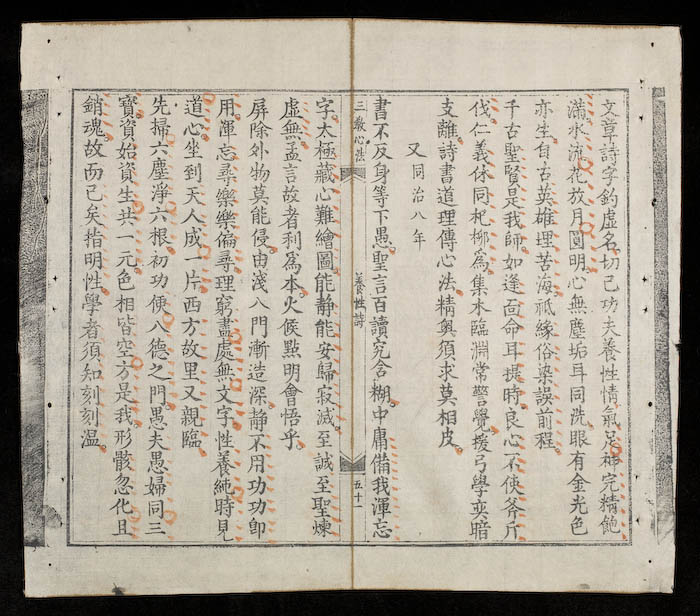 文章詩字釣虛名切己功夫養性情氣足神完精飽
滿水流花放月圓明心無塵垢耳同洗眼有金光色
亦生自古英雄理苦海祗緣俗染誤前程
千古聖賢是我師如逢面命耳提時良心不使斧斤
伐仁義休同杞柳爲集木臨淵常警覺援弓學奕暗
支離詩書道理傳心法精奧須求莫相皮
又同治八年
書不反身等下愚聖言百讀究含糊中庸備我渾忘
三教心法
養性詩
五十一
字太極藏心難繪圖能靜能安歸寂滅至誠至聖煉
虛無孟言故者利爲本火候點明會悟乎
屏除外物莫能侵由淺八門漸造深靜不用功功卽
用渾忘尋樂樂偏尋理窮盡處無文字性養純時見
道心坐到天人成一片西方故里又親臨
先掃六塵淨六根初功便八德之門愚夫愚婦同三
寶資始資生共一元色相皆空方是我形骸忽化且
銷魂故而已矣指明性學者須知刻刻溫